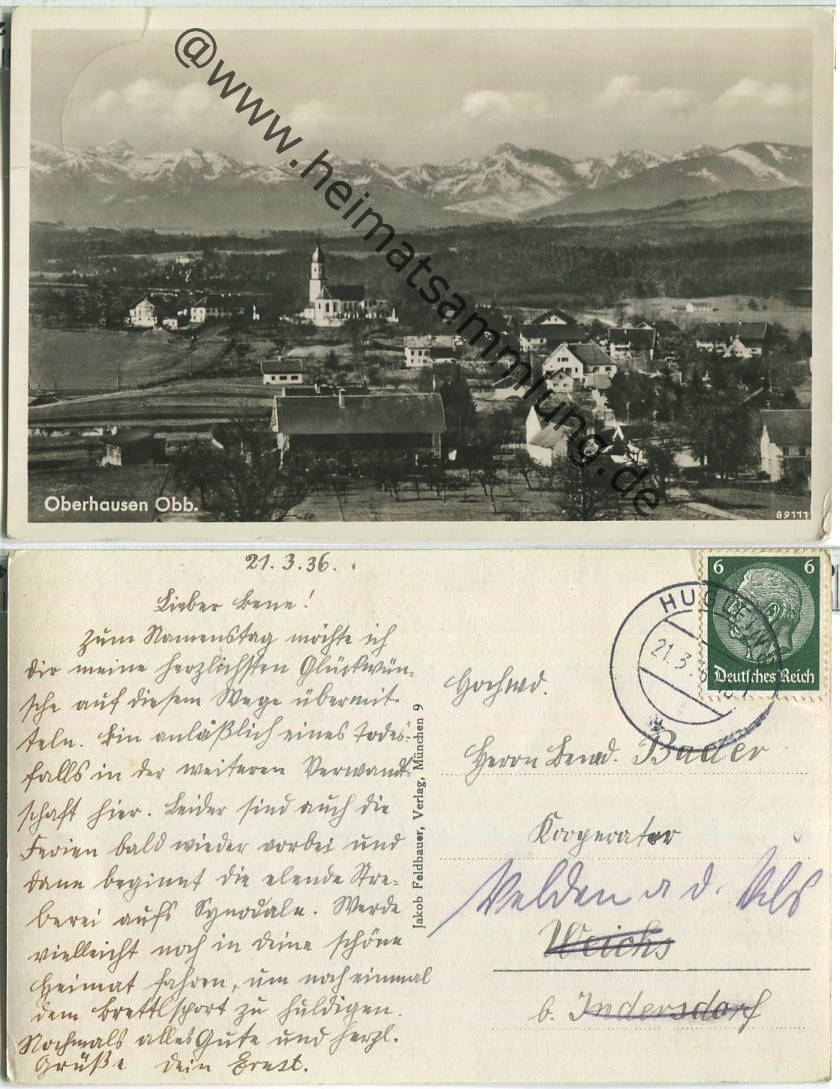 @www.heimatsammlung.de
Oberhausen Obb.
89111
21.3.36.
Lieber Bene!
Zum Namenstag möchte ich
dir meine herzlichsten Glückwün-
sche auf diesem Wege übermit-
teln. Bin anläßlich eines Todes-
falls in der weiteren Verwandt-
schaft hier. Leider sind auch die
Ferien bald wieder vorbei und
dann beginnt die elende Stre-
berei aufs Synodale. Werde
vielleicht noch in deine schöne
Heimat fahren, um noch einmal
dem Brettlsport zu huldigen.
Nochmals alles Gute und herzl.
Grüße dein Ernst.
Jakob Feldbauer, Verlag, München 9
HUGLFING
21.3.36
6 6
Deutsches Reich
Hochwd.
Herrn Bened. Bader
Kooperator
Velden a d. Vils
Weichs
b. Indersdorf